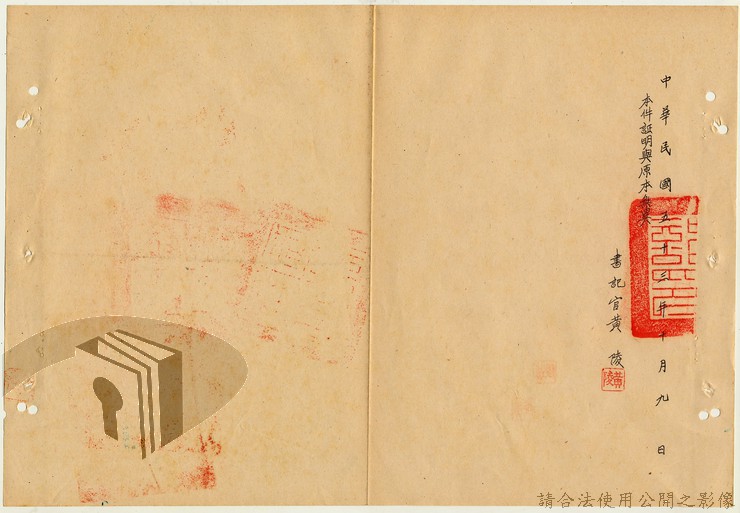 中華民國五十三年十月九日
本件證明與原本無異
書記官黃陵
黃陵
請合法使用公開之影像